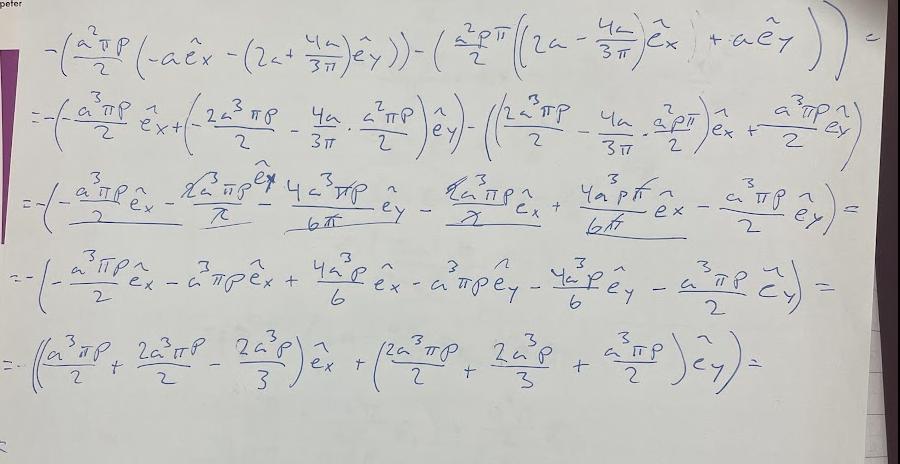 peter
-(a²πρ/2 (-aêx - (2a + 4a/3π)êy)) - (a²ρπ/2 ((2a - 4a/3π)êx + aêy)) =
= -(-a³πρ/2 êx + (-2a³πρ/2 - 4a/3π · a²πρ/2)êy) - ((2a³πρ/2 - 4a/3π · a²ρπ/2)êx + a³πρ/2 êy)
= -(-a³πρ/2 êx - 2a³πρ/2 êy - 4a³πρ/6π êy - 2a³πρ/2 êx + 4a³ρπ/6π êx - a³πρ/2 êy) =
= -(-a³πρ/2 êx - a³πρêx + 4a³ρ/6 êx - a³πρêy - 4a³ρ/6 êy - a³πρ/2 êy) =
= -((a³πρ/2 + 2a³πρ/2 - 2a³ρ/3)êx + (2a³πρ/2 + 2a³ρ/3 + a³πρ/2)êy) =